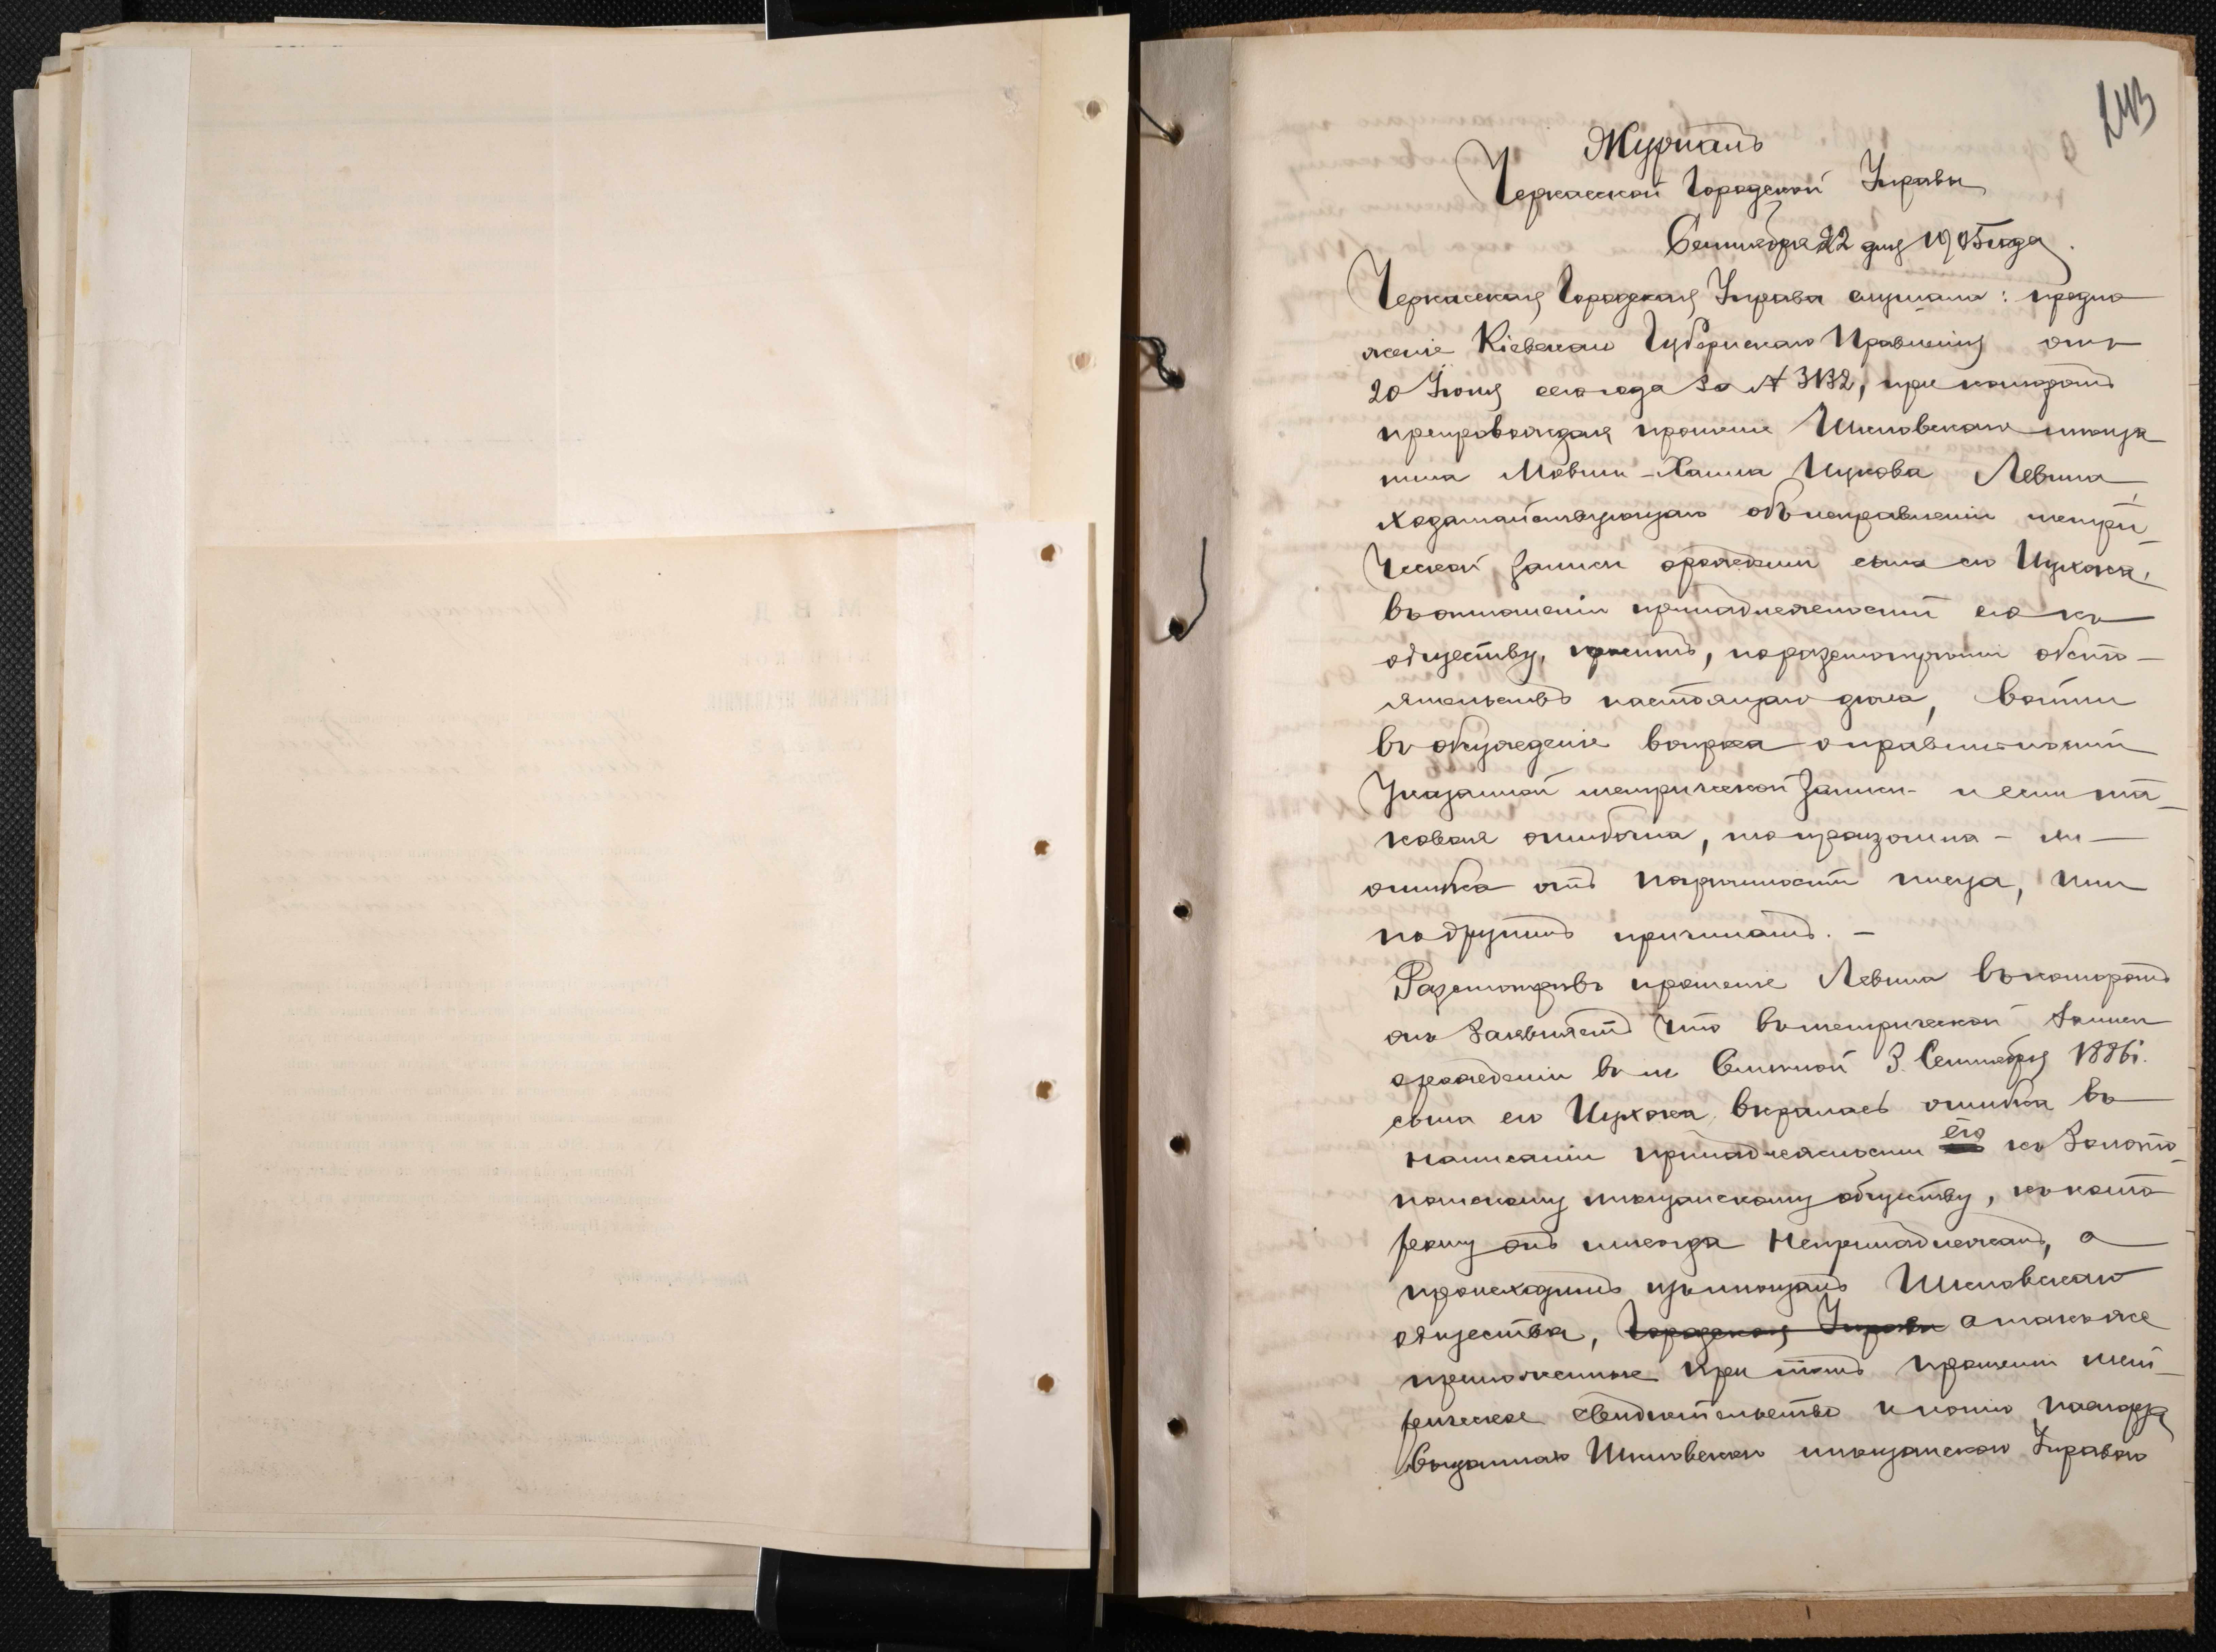 243
Журналъ
Черкасской Городской Управы
Сентября 22 дня 1905 года.
Черкасская Городская Управа слушала: предло
женіе Кіевскаго Губернскаго Правленія отъ
20 Іюня сего года за № 3132, при которомъ
препровождая прошеніе Шкловскаго мѣща
нина Мовши-Хаима Цукова Левина,
ходатайствующаго объ исправленіи метри
ческой записи о рожденіи сына его Цухока,
въ отношеніи принадлежности его къ
обществу, проситъ, по разсмотрѣніи обсто-
ятельствъ настоящаго дѣла, войти
въ обсужденіе вопроса о правильности
указанной метрической записи и если та-
ковая ошибочна, то произошла-ли
ошибка отъ небрежности писца, или
по другимъ причинамъ. —
Разсмотрѣвъ прошеніе Левина въ которомъ
онъ заявляетъ что въ метрической записи
о рожденіи въ м. Смѣлой 3 Сентября 1886 г.
сына его Цухока, вкралась ошибка въ
написаніи принадлежности его къ Золото-
ношскому мѣщанскому обществу, къ кото
рому онъ никогда не принадлежалъ, а
происходитъ изъ мѣщанъ Шкловскаго
общества, Городская Управа а также
приложенные при томъ прошеніи мет-
рическое свидѣтельство и копію паспорта
выданнаго Шкловской мѣщанской Управою